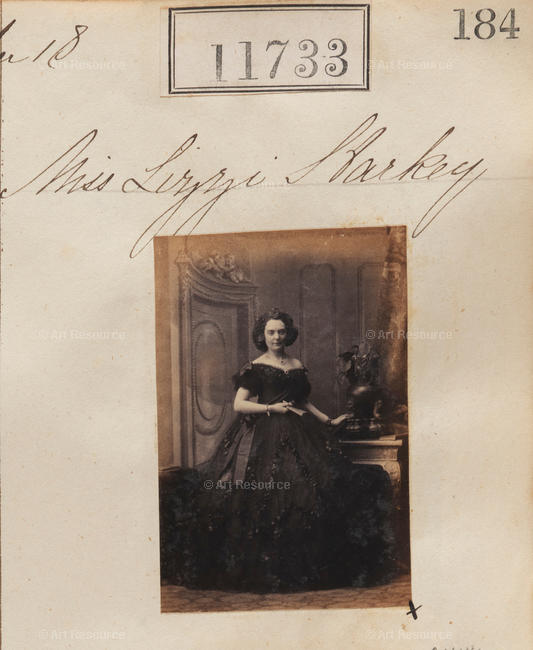 184
11733
18
Miss Lizzi Sharkey
© Art Resource
© Art Resource
© Art Resource
© Art Resource
© Art Resource
© Art Resource
© Art Resource
© Art Resource